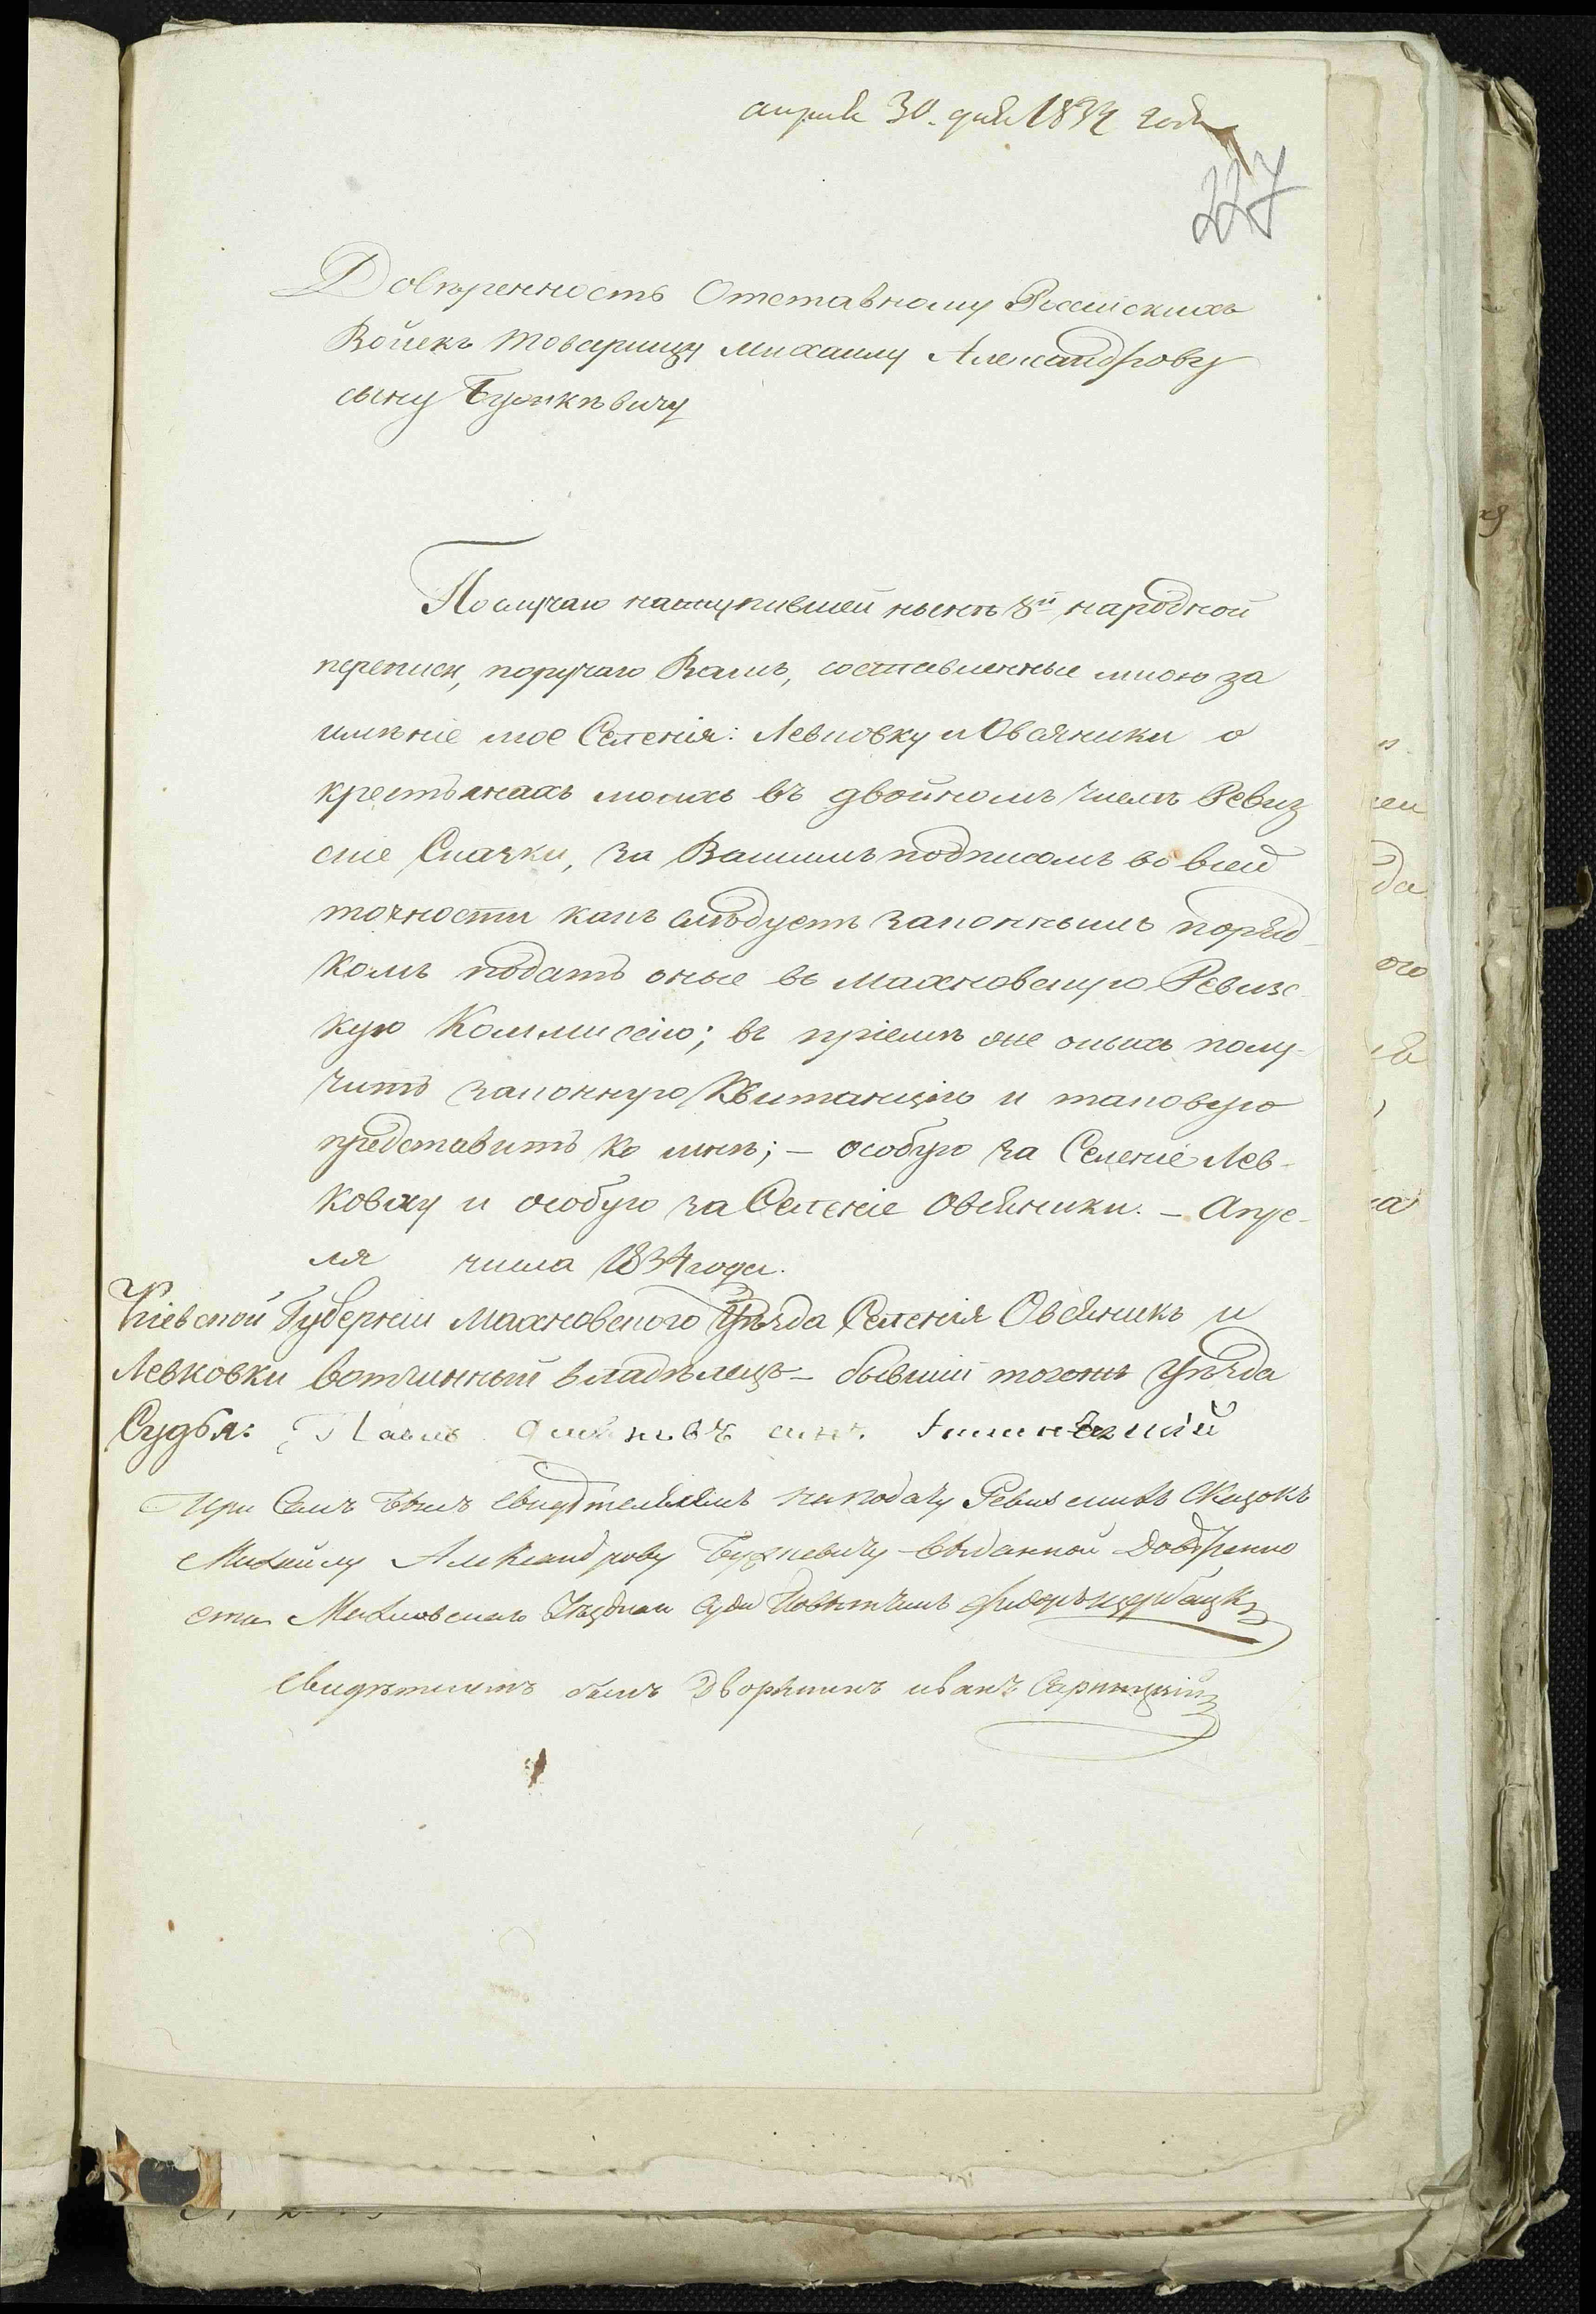 апреля 30. дня 1834 года
227
Довѣренность Отставному Россійскихъ
Войскъ товарищу Михаилу Александрову
сыну Буткѣвичу
По случаю наступившей нынѣ 8й народной
переписи, поручаю Вамъ, составленные мною за
имѣніе мое Селенія: Левковку и Овсяники о
крестьянахъ моихъ въ двойномъ числѣ Ревиз
скіе Сказки, за Вашимъ подписомъ во всей
точности какъ слѣдуетъ законнымъ поряд-
комъ подать оные въ Махновскую Ревизс-
кую Коммиссію; въ пріемѣ же оныхъ полу-
чить законную Квитанцію и таковую
представить ко мнѣ; – особую за Селеніе Лев-
ковку и особую за Селеніе Овсяники. – Апре-
ля числа 1834 года.
Кіевской Губерніи Махновского Уѣзда Селенія Овсяникъ и
Левковки вотчинный владѣлецъ – бывший тогожъ Уѣзда
Судья: Павлъ сынъ
При семъ былъ свидѣтелемъ на подачу Ревизскихъ Сказокъ
Михайлу Александрову выданной Довѣренно
сти Махновскаго Уѣзднаго Суда Повѣтчикъ Федоръ Щербацкі
Свидѣтелемъ былъ Дворянинъ Иванъ